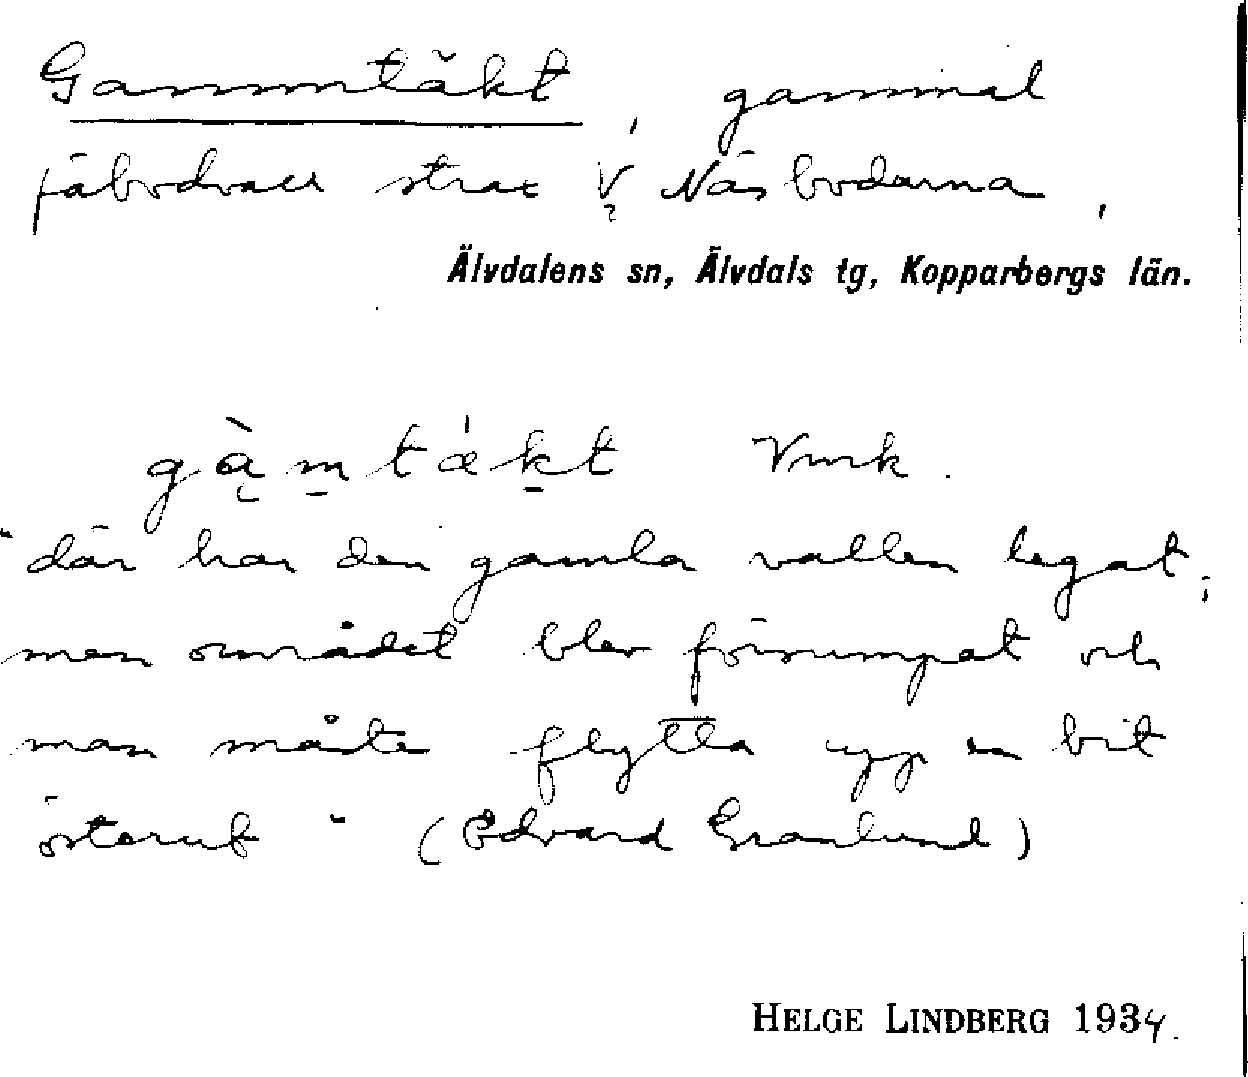 Gammtäkt, gammal
fäbodvall strax V Näsbodarna,
?
Älvdalens sn, Älvdals tg, Kopparbergs län.
gàmtækt Vmk.
"där har den gamla vallen legat;
men området blev försumpat och
man måste flytta upp en bit
österut" (Edvard Granlund)
HELGE LINDBERG 1934.